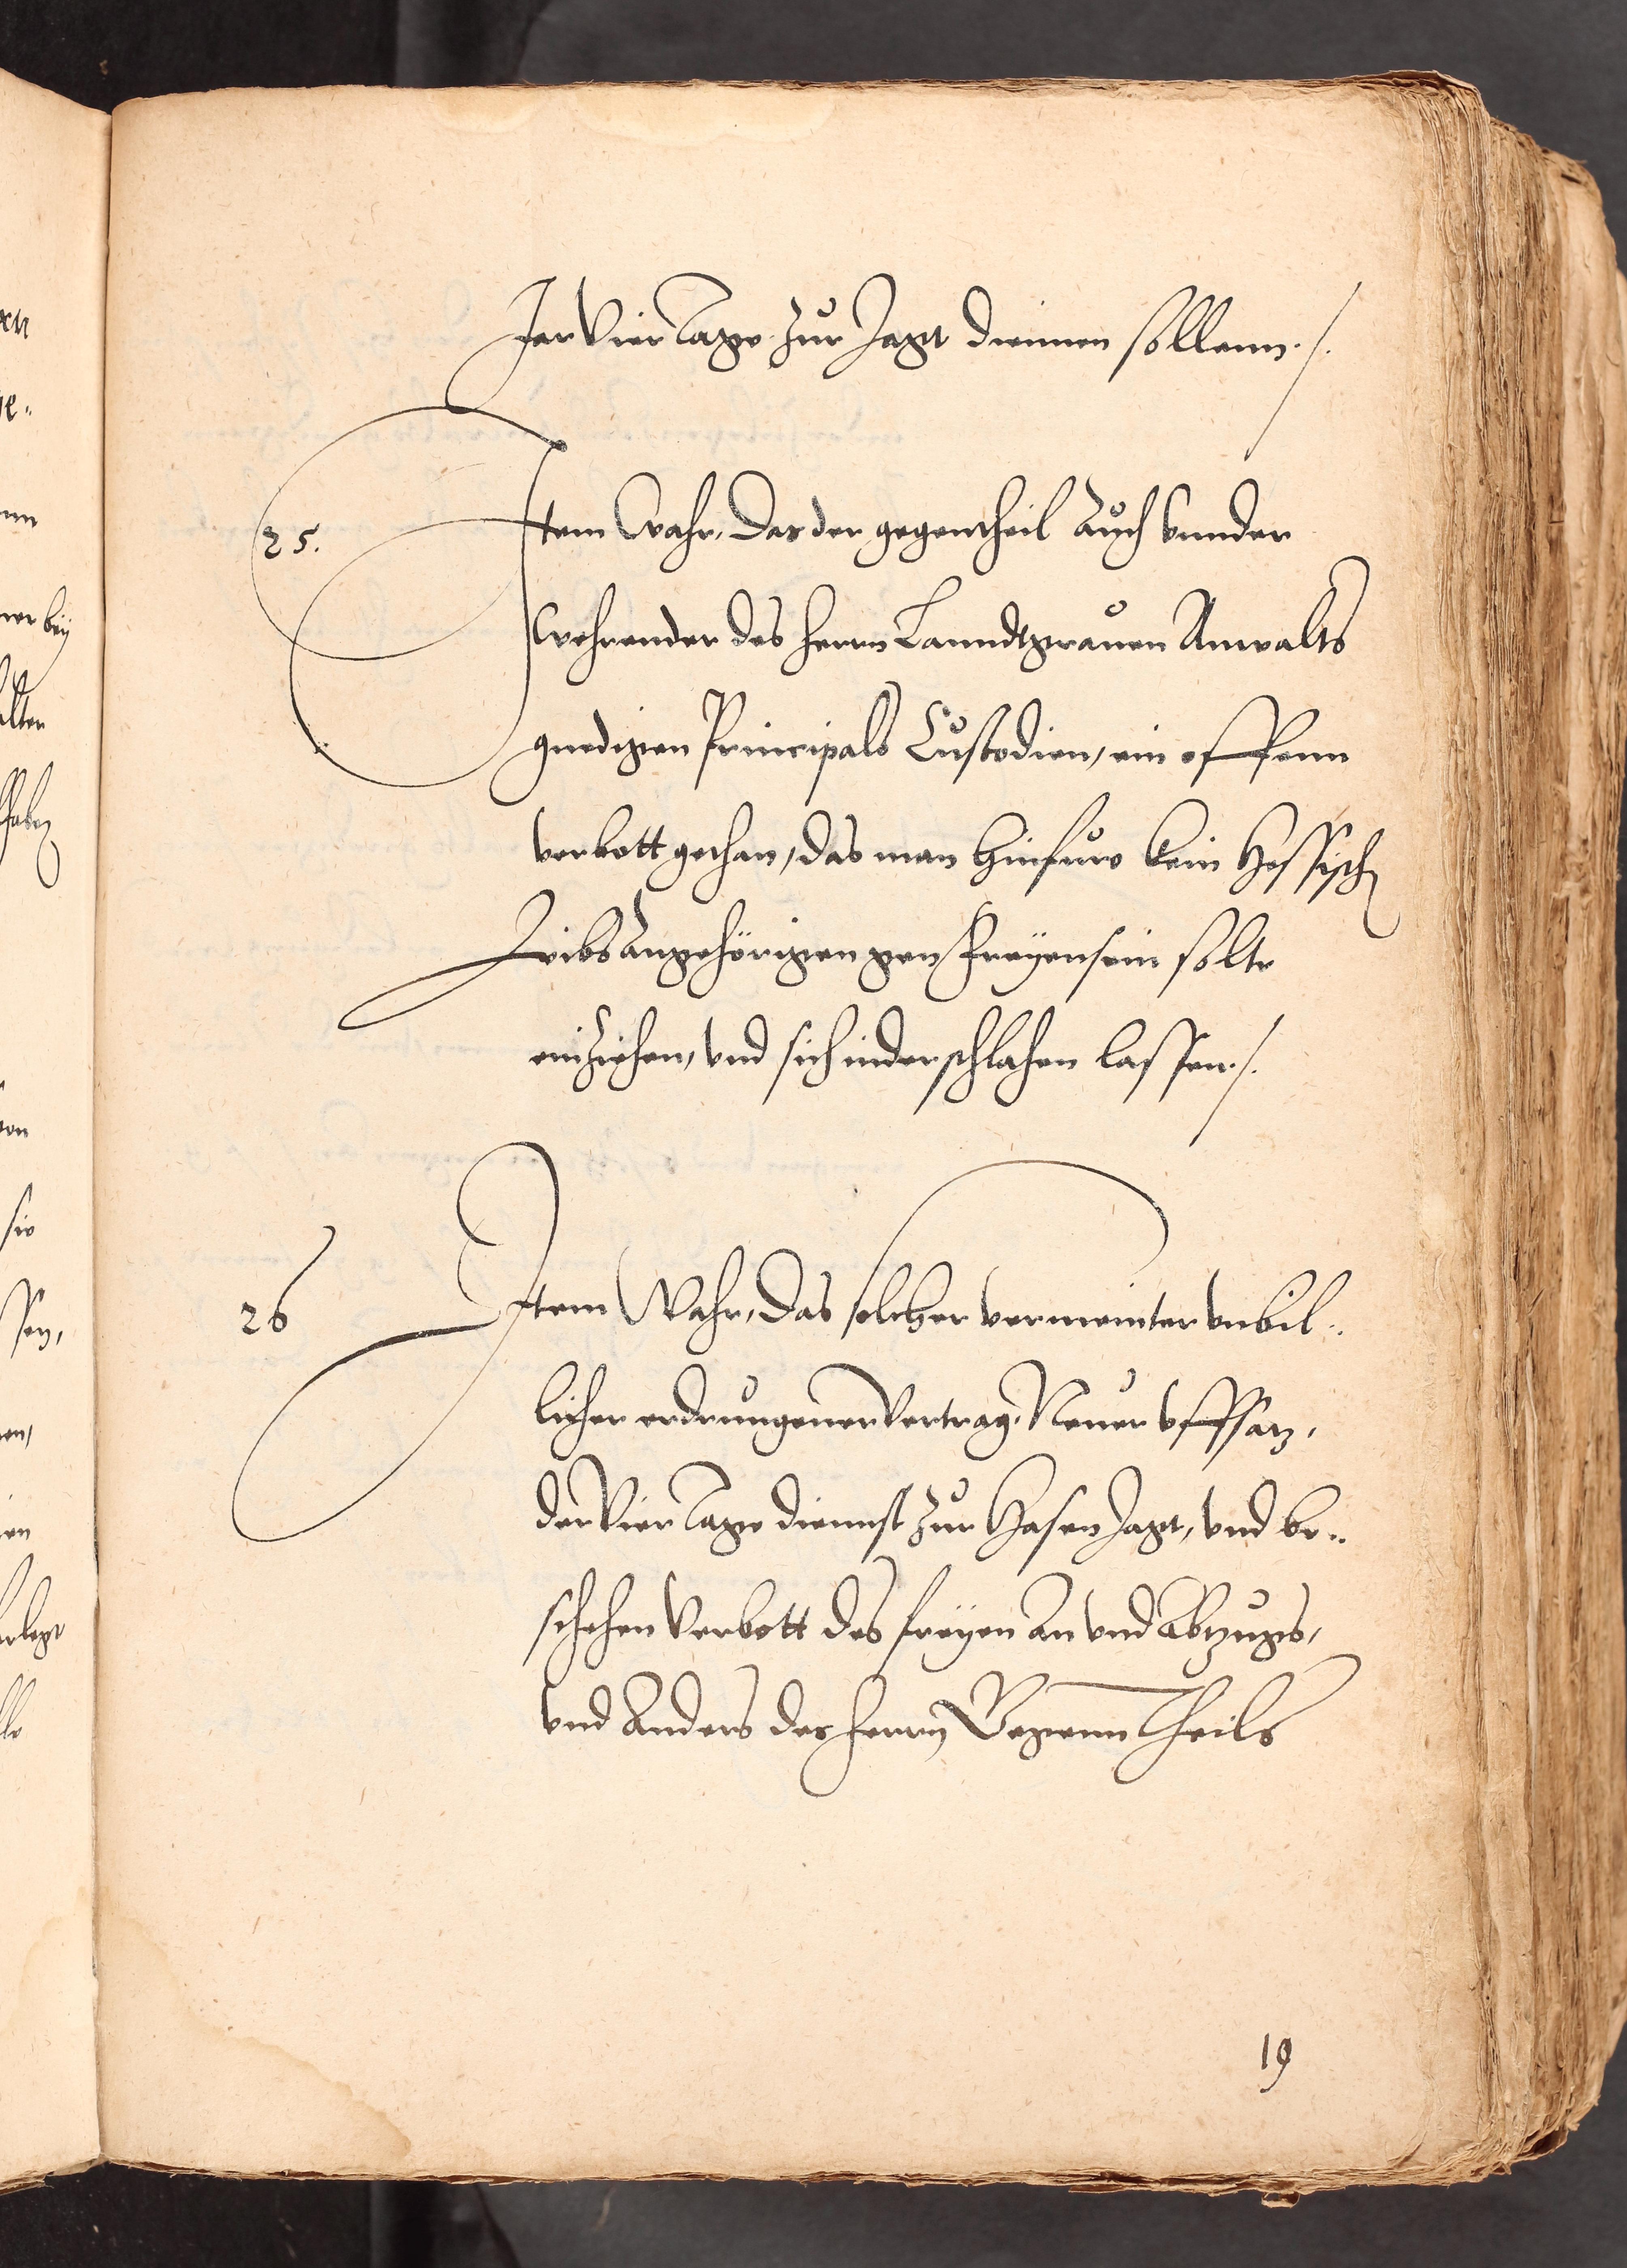 Jar Vier Tage zur Jagt diennen sollenn ./.
25.
Jtem Wahr, Das der gegentheil Auch Vnnder
wehrender des herrn Lanndtgrauen Anwalts
gnedigen Principals Custodien, ein offenn
verbott gethan, das man hinfuro kein Hessisch
Leibs Angehörigen gen Freyensein solte
einziehen, vnd sich inderschlahen lassen ./.
26
Jtem Wahr, Das solcher vermeinter vnbil..
licher erdrungener Vertrag, Neuer Vffsatz,
der Vier Tage diennst zur Hasen Jagt, vnd be..
schehen Verbott des freyen An vnd Abzugs,
vnd Anders des herrn Gegenn Theils
19